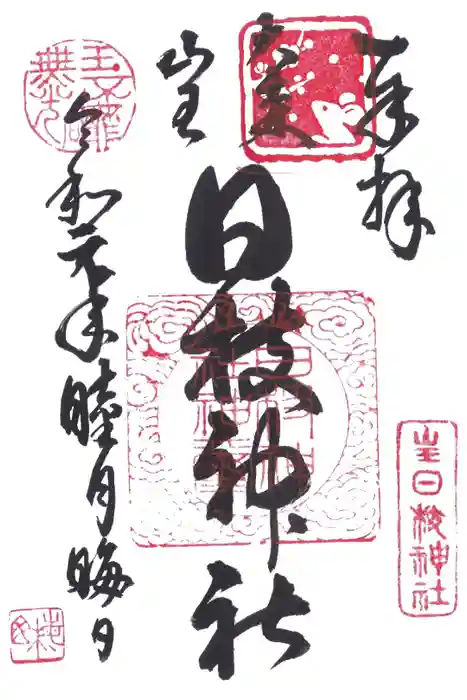 奉拝
山王
日枝神社
令和元年睦月晦日
山王日枝神社